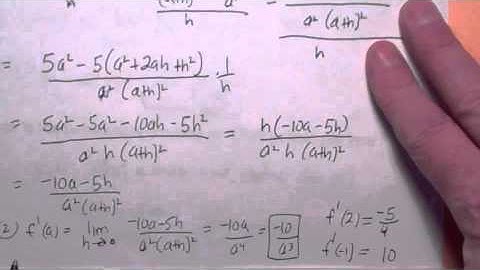 h
a²(a+h)²
h
= 5a² - 5(a²+2ah+h²) / a²(a+h)² · 1/h
= 5a² - 5a² - 10ah - 5h² / a² h (a+h)² = h(-10a-5h) / a² h (a+h)²
= -10a-5h / a²(a+h)²
2) f'(a) = lim h→0 -10a-5h / a²(a+h)² = -10a / a⁴ = -10 / a³ f'(2) = -5/4
f'(-1) = 10